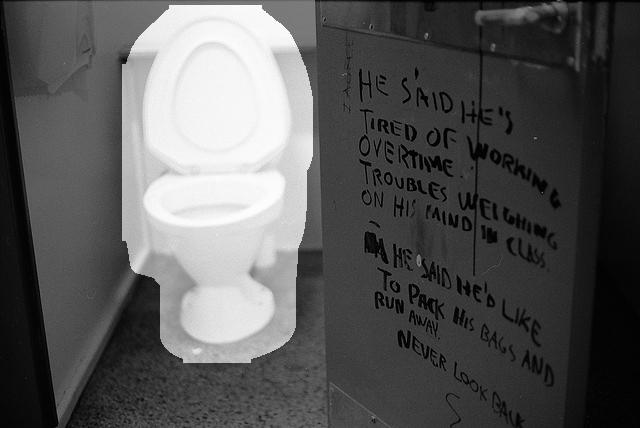 HE SAID HE'S
TIRED OF WORKING
OVERTIME.
TROUBLES WEIGHING
ON HIS MIND IN CLASS.
HE SAID HE'D LIKE
TO PACK HIS BAGS AND
RUN AWAY.
NEVER LOOK BACK